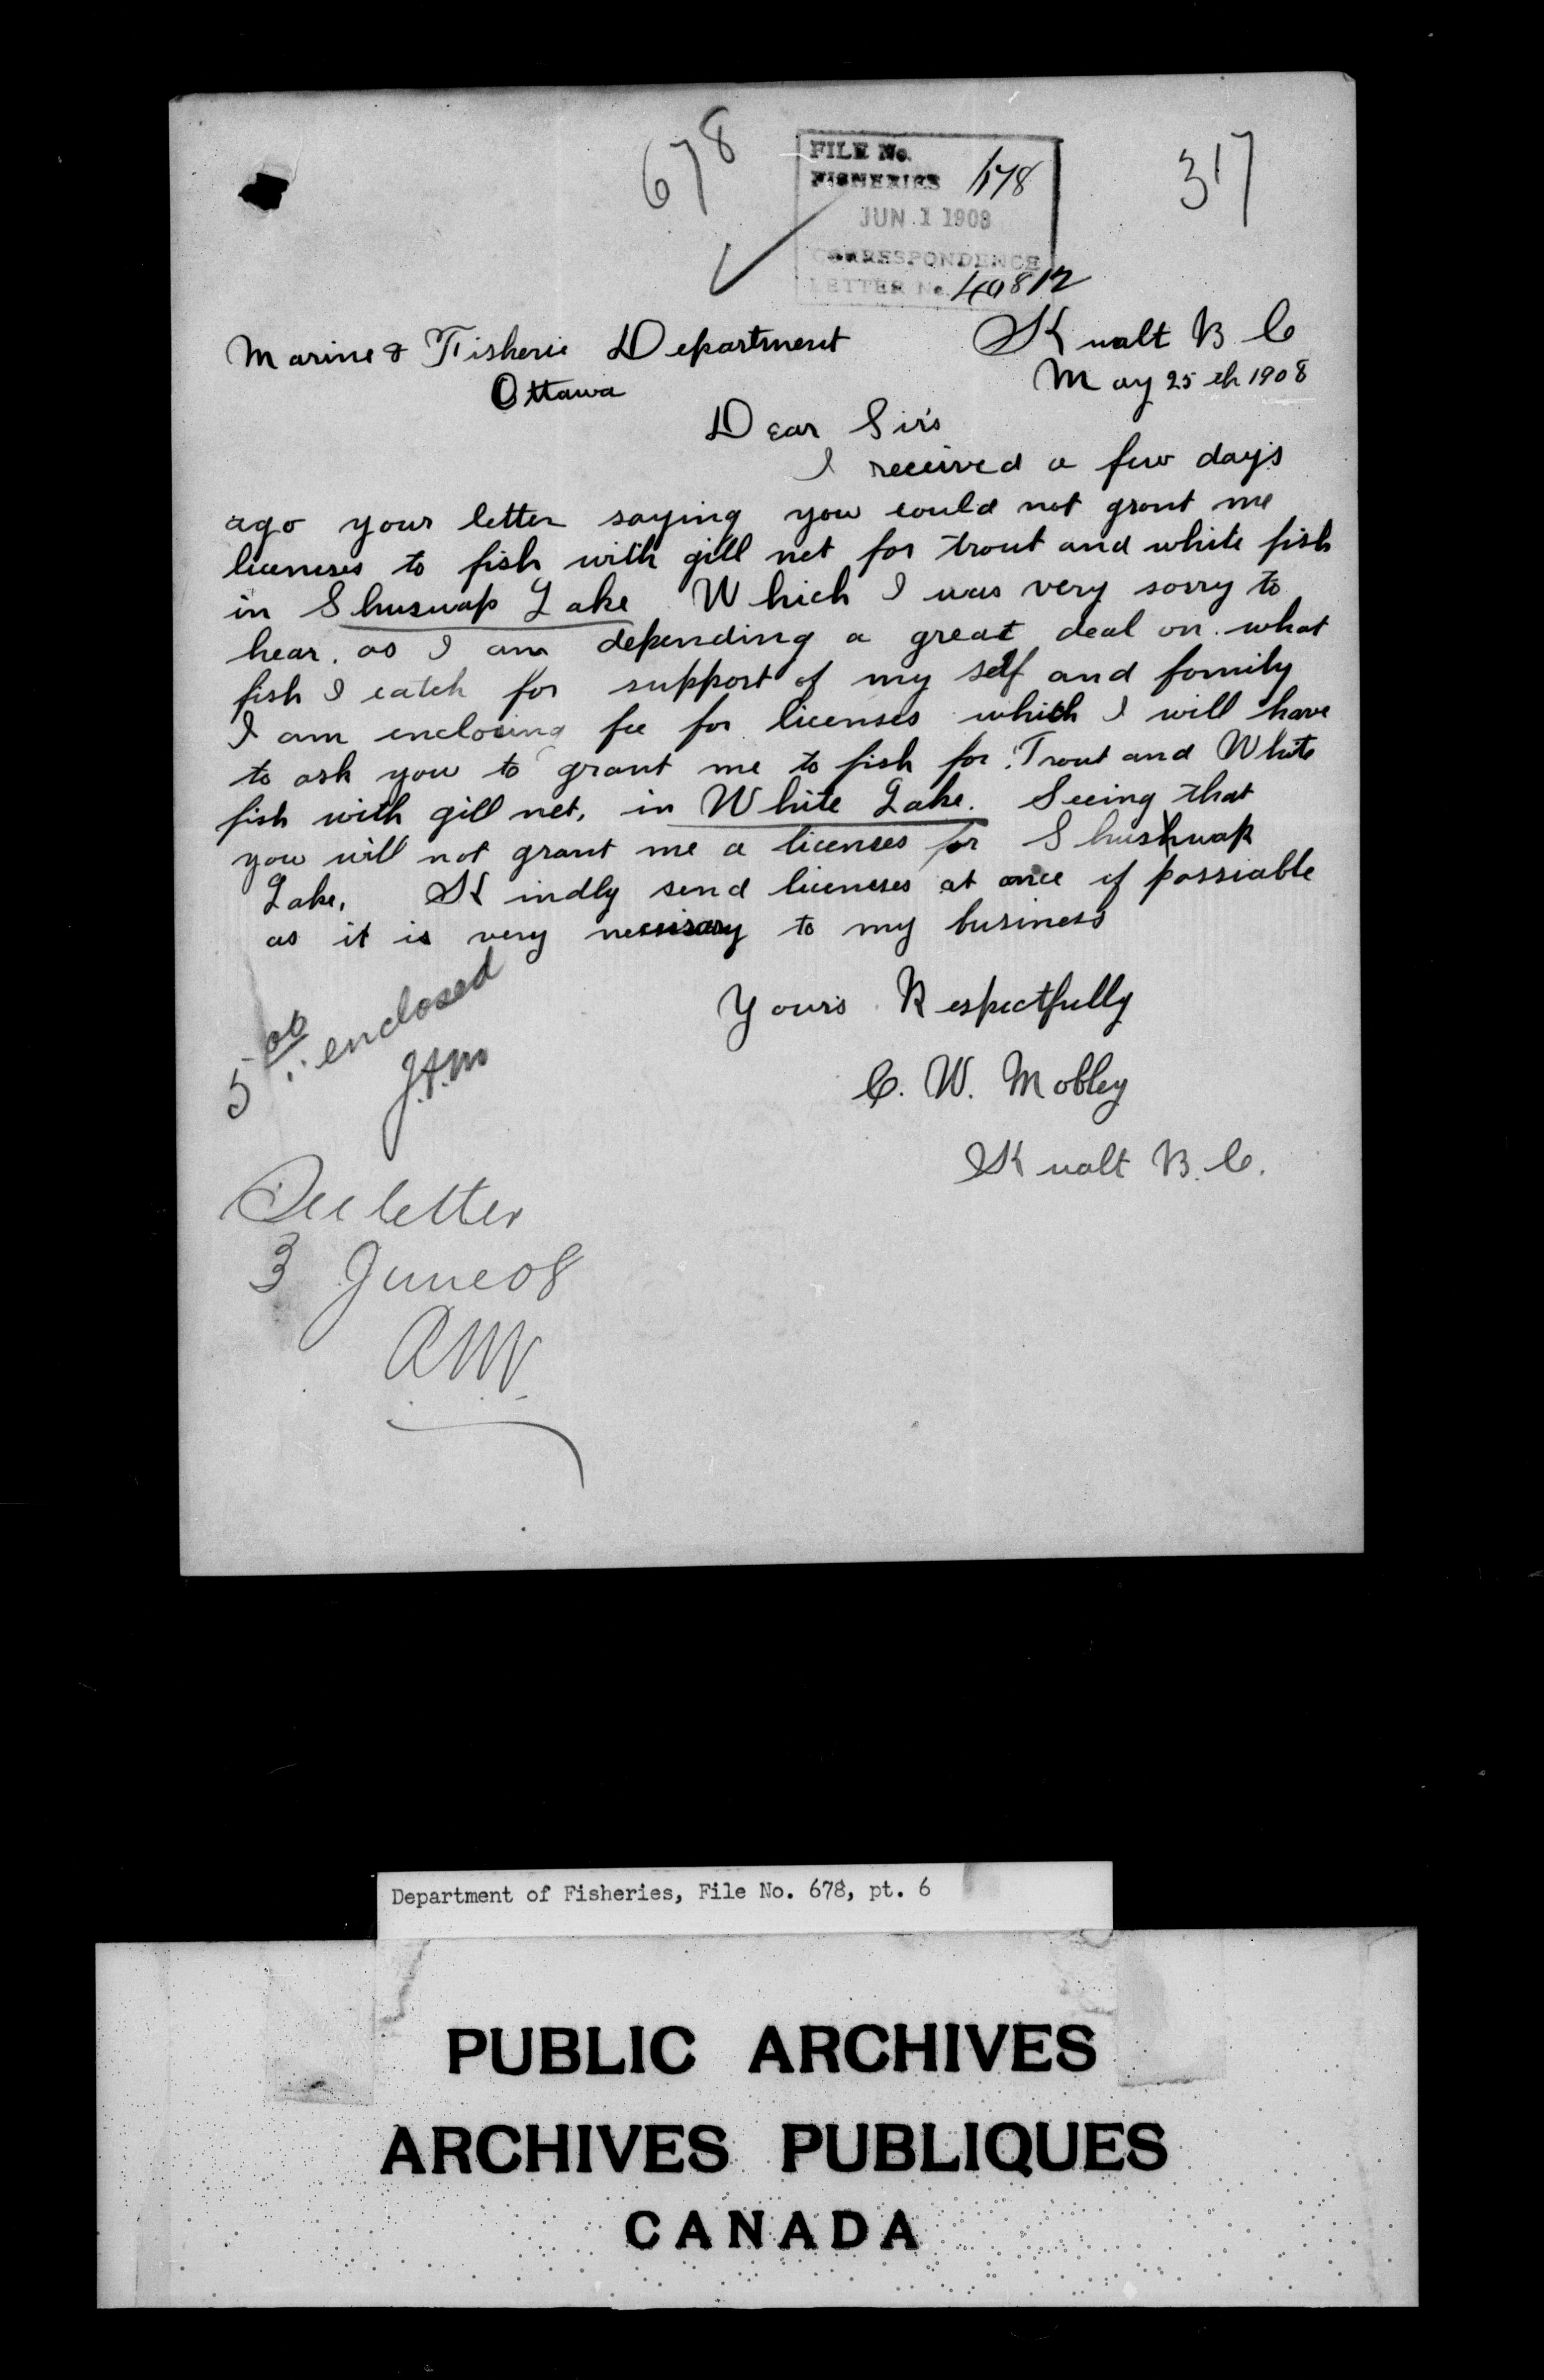 678
317
FILE No.
FISHERIES 678
JUN 1 1908
CORRESPONDENCE
LETTER No. 40812
Kualt B C
Marine & Fisherie Department
May 25 th 1908
Ottawa
Dear Sir's
I received a few day's
ago your letter saying you could not grant me
licenses to fish with gill net for trout and white fish
in Shuswap Lake Which I was very sorry to
hear. as I am depending a great deal on what
fish I catch for support of my self and family
I am enclosing fee for licenses which I will have
to ask you to grant me to fish for Trout and White
fish with gill net, in White Lake. Seeing that
you will not grant me a licenses for Shushwap
Lake, Kindly send licenses at once if possiable
as it is very necissary to my business
Your's Respectfully
C. W. Mobley
Kualt B. C.
5 00 enclosed
J.A.M
See letter
3 June 08
Department of Fisheries, File No. 678, pt. 6
PUBLIC ARCHIVES
ARCHIVES PUBLIQUES
CANADA